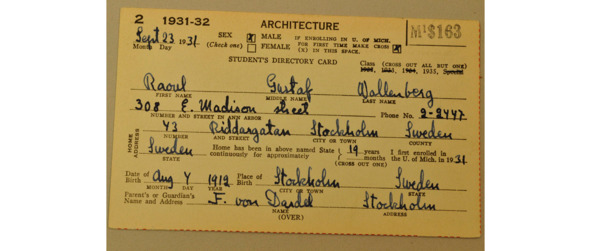 2 1931-32 ARCHITECTURE M1$163
Sept 23 1931 SEX X MALE IF ENROLLING IN U. OF MICH.
Month Day (Check one) FEMALE FOR FIRST TIME MAKE CROSS X
(X) IN THIS SPACE.
STUDENT'S DIRECTORY CARD Class (CROSS OUT ALL BUT ONE)
1935, Special
Raoul Gustaf Wallenberg
FIRST NAME MIDDLE NAME LAST NAME
308 E. Madison street Phone No. 2-2447
NUMBER AND STREET IN ANN ARBOR
HOME ADDRESS
43 Riddargatan Stockholm Sweden
NUMBER AND STREET CITY OR TOWN COUNTY
Sweden Home has been in above named State 19 years I first enrolled in
STATE continuously for approximately months the U. of Mich. in 1931
(CROSS OUT ONE)
Date of Birth Aug 4 1912 Place of Birth Stockholm Sweden
MONTH DAY YEAR CITY OR TOWN STATE
Parent's or Guardian's Name and Address F. von Dardel Stockholm
NAME ADDRESS
(OVER)